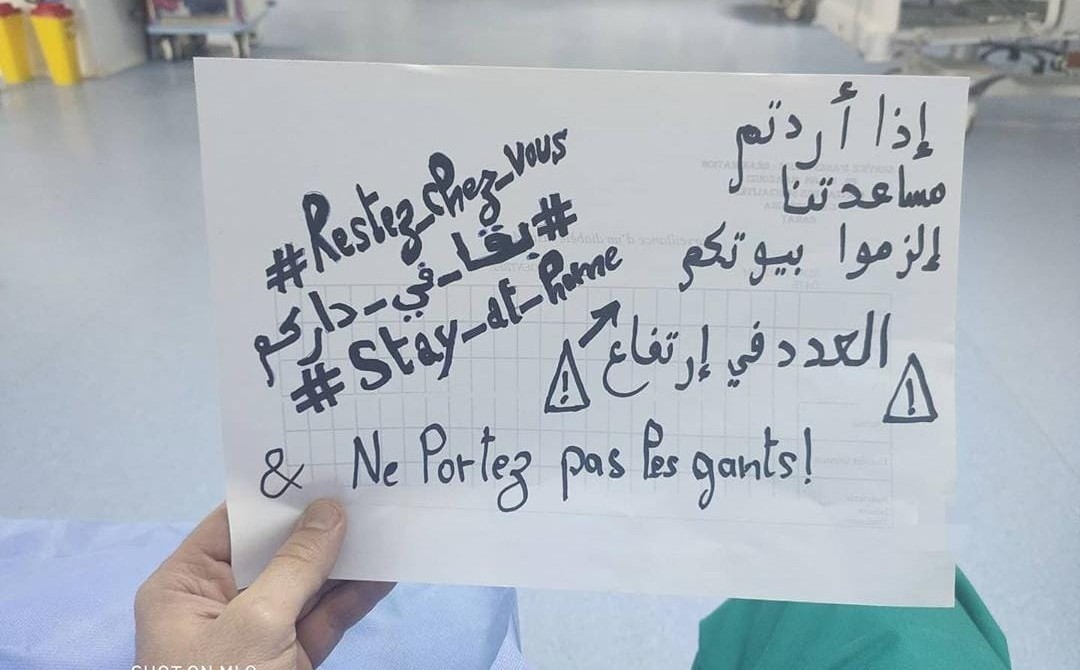 إذا أردتم
مساعدتنا
إلزموا بيوتكم
العدد في إرتفاع
#Restez_chez_vous
#بقا_في_داركم
#Stay_at_home
& Ne Portez pas les gants!
SHOT ON MI 9